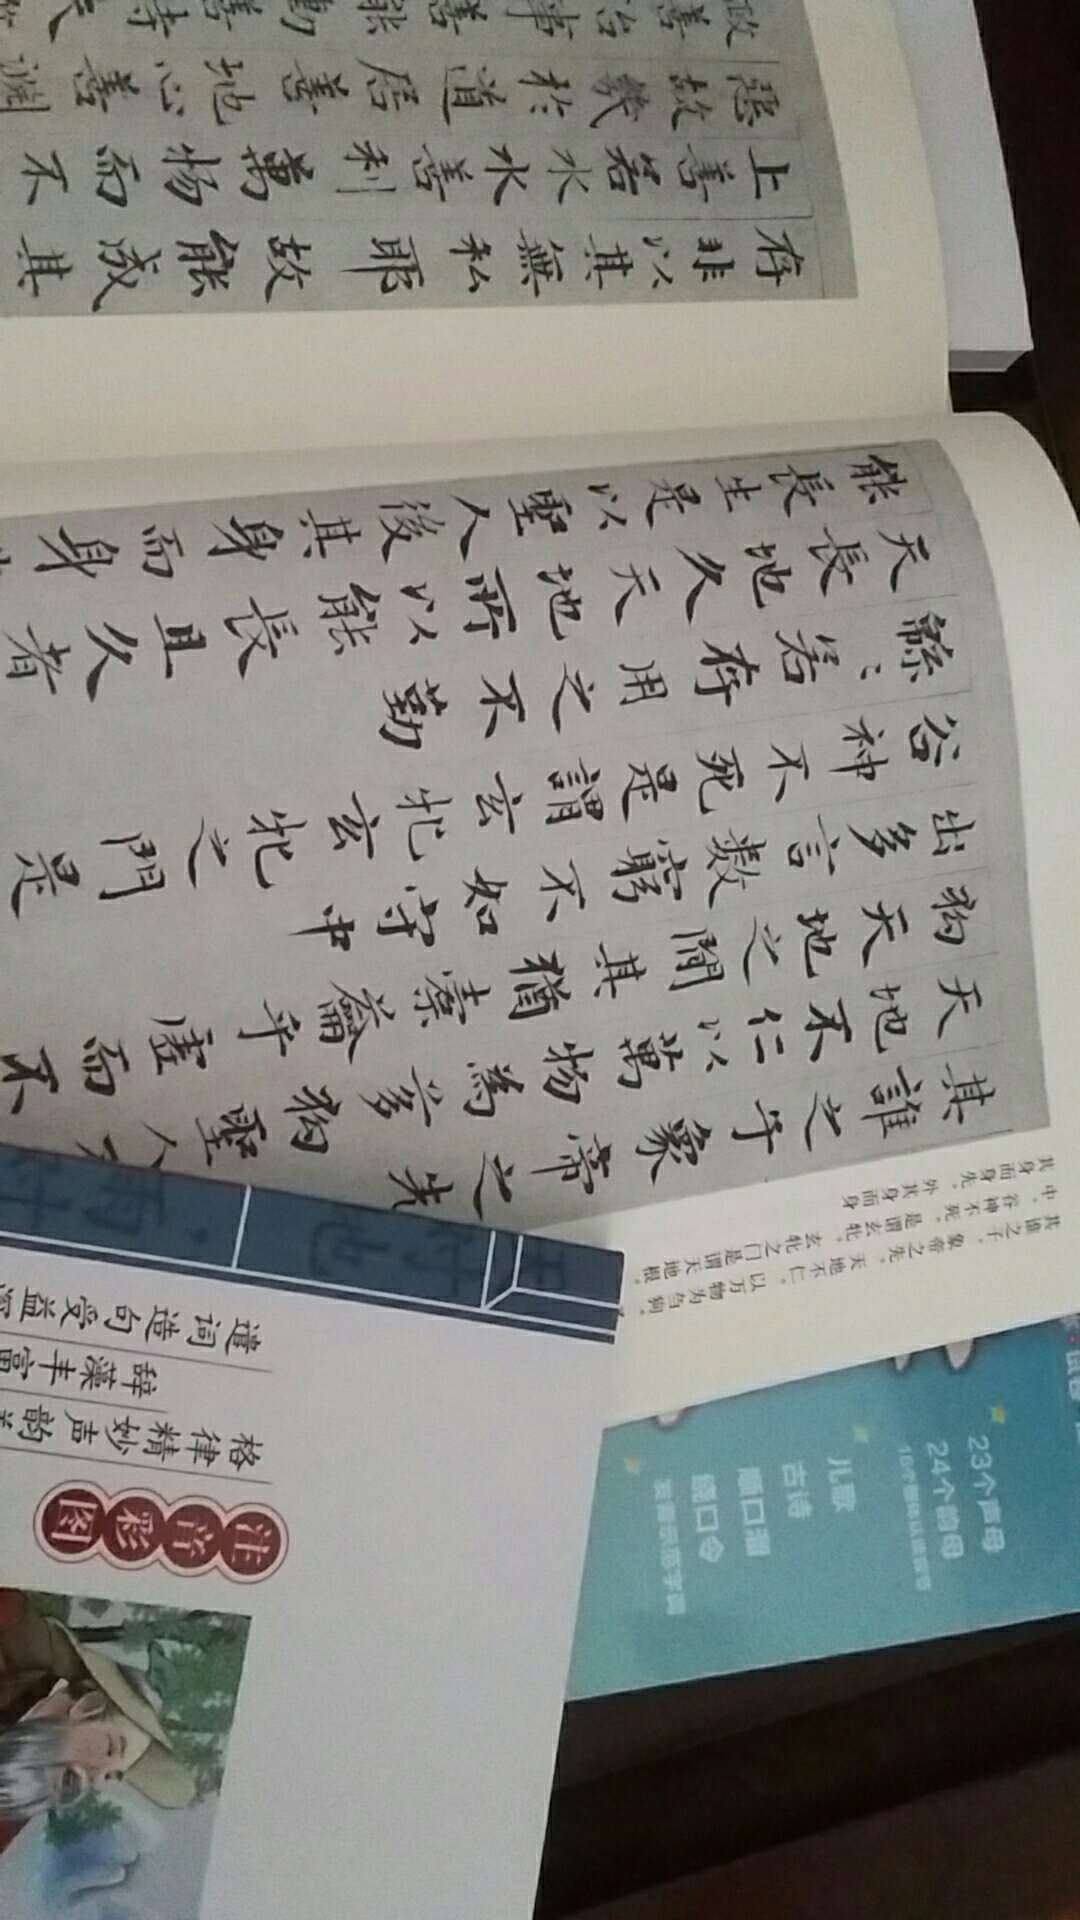 其誰之子象帝之先
天地不仁以萬物為芻狗聖人
狗天地之間其猶橐籥乎虛而不
出多言數窮不如守中
谷神不死是謂玄牝玄牝之門是
綿〻若存用之不勤
天長地久天地所以能長且久者
能長生是以聖人後其身而身
存非以其無私耶故能成其
上善若水水善利萬物而不
惡故幾於道居善地心善淵
政善治事善能動善時
其谁之子，象帝之先。天地不仁，以万物为刍狗。
中。谷神不死，是谓玄牝。玄牝之门是谓天地根。
其身而身先，外其身而身
遣词造句受益
辞藻丰富
格律精妙声韵
注音彩图
23个声母
24个韵母
16个整体认读音节
儿歌
古诗
顺口溜
绕口令